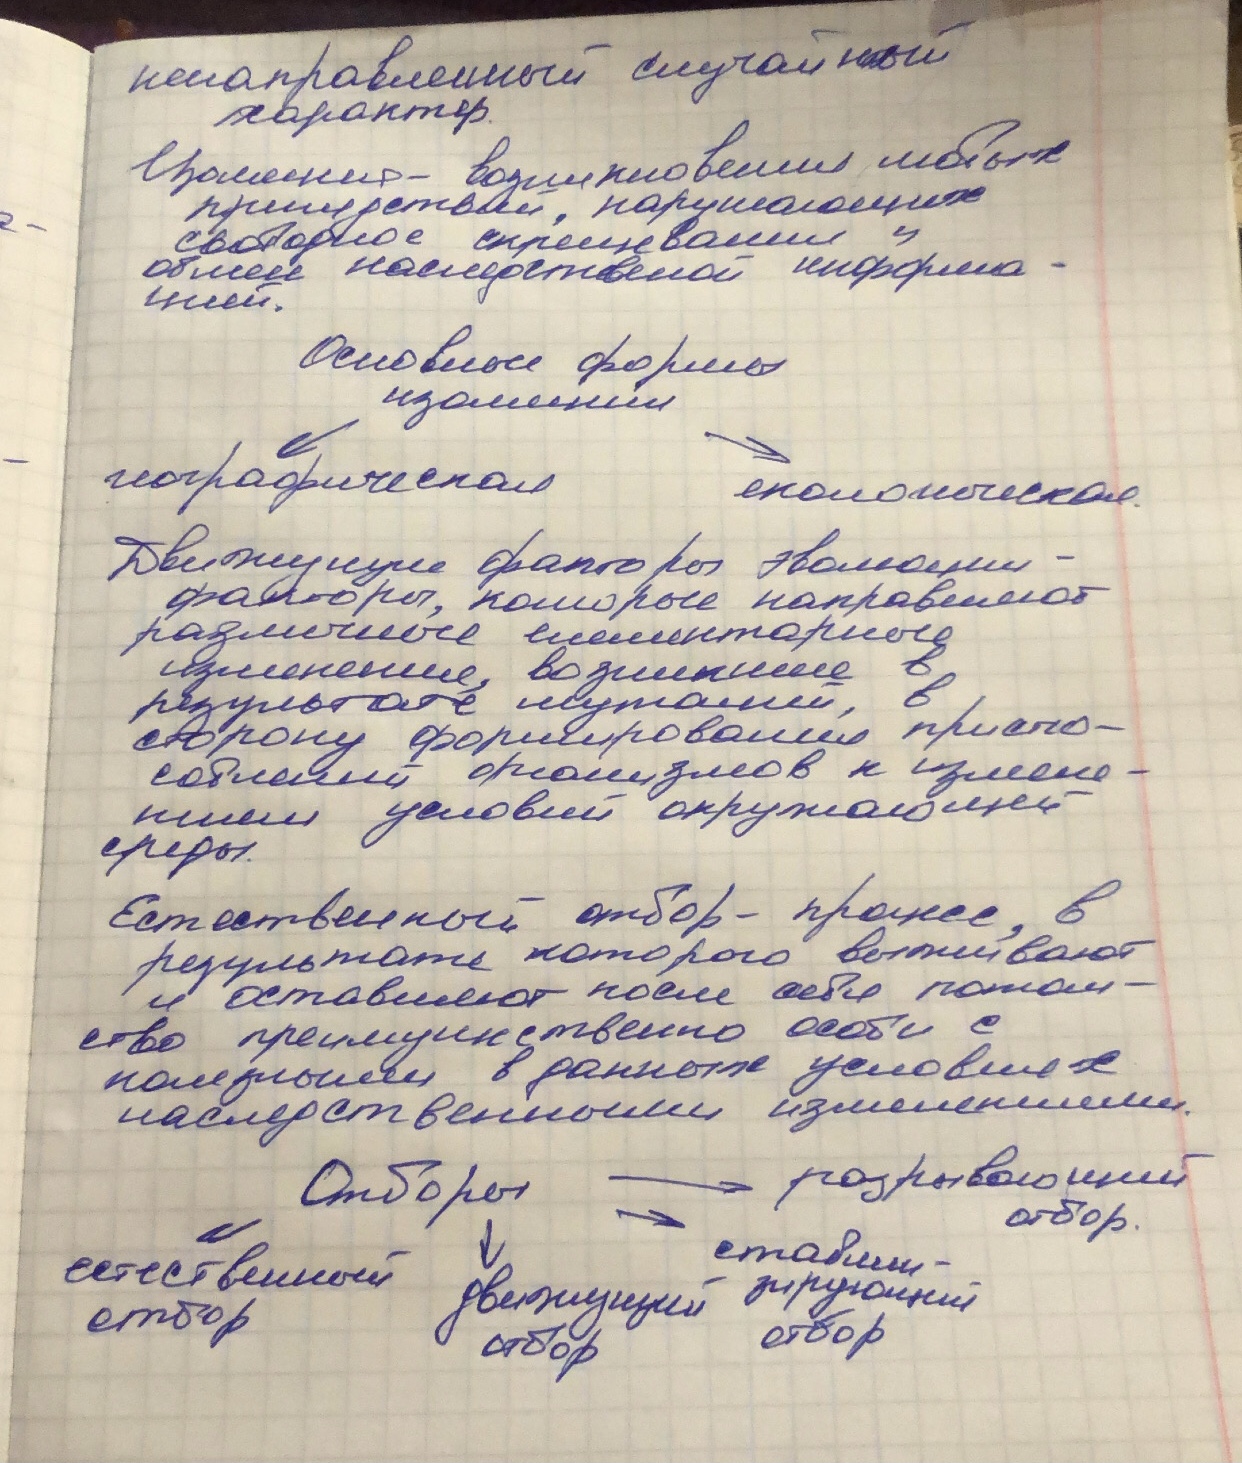 ненаправленный случайный
характер.
Изоляция - возникновения любых
припядствий, нарушающих
свободное скрещивания и
обмен наследственой информа-
цией.
Основные формы
изоляции
географическая
екологическая.
Движущие факторы эволюции -
факторы, которые направляют
различные елементарные
изменение, возникшие в
результате мутаций, в
сторону формирования приспо-
соблений организмов к измене-
ниям условий окружающей
среды.
Естественный отбор - процесс, в
результате которого выживают
и оставляют после себя потом-
ство преимущественно особи с
полезными в данных условиях
наследственными изменениями.
Отборы
разрывающий
отбор.
естественный
отбор
движущий
отбор
стабили-
зирующий
отбор